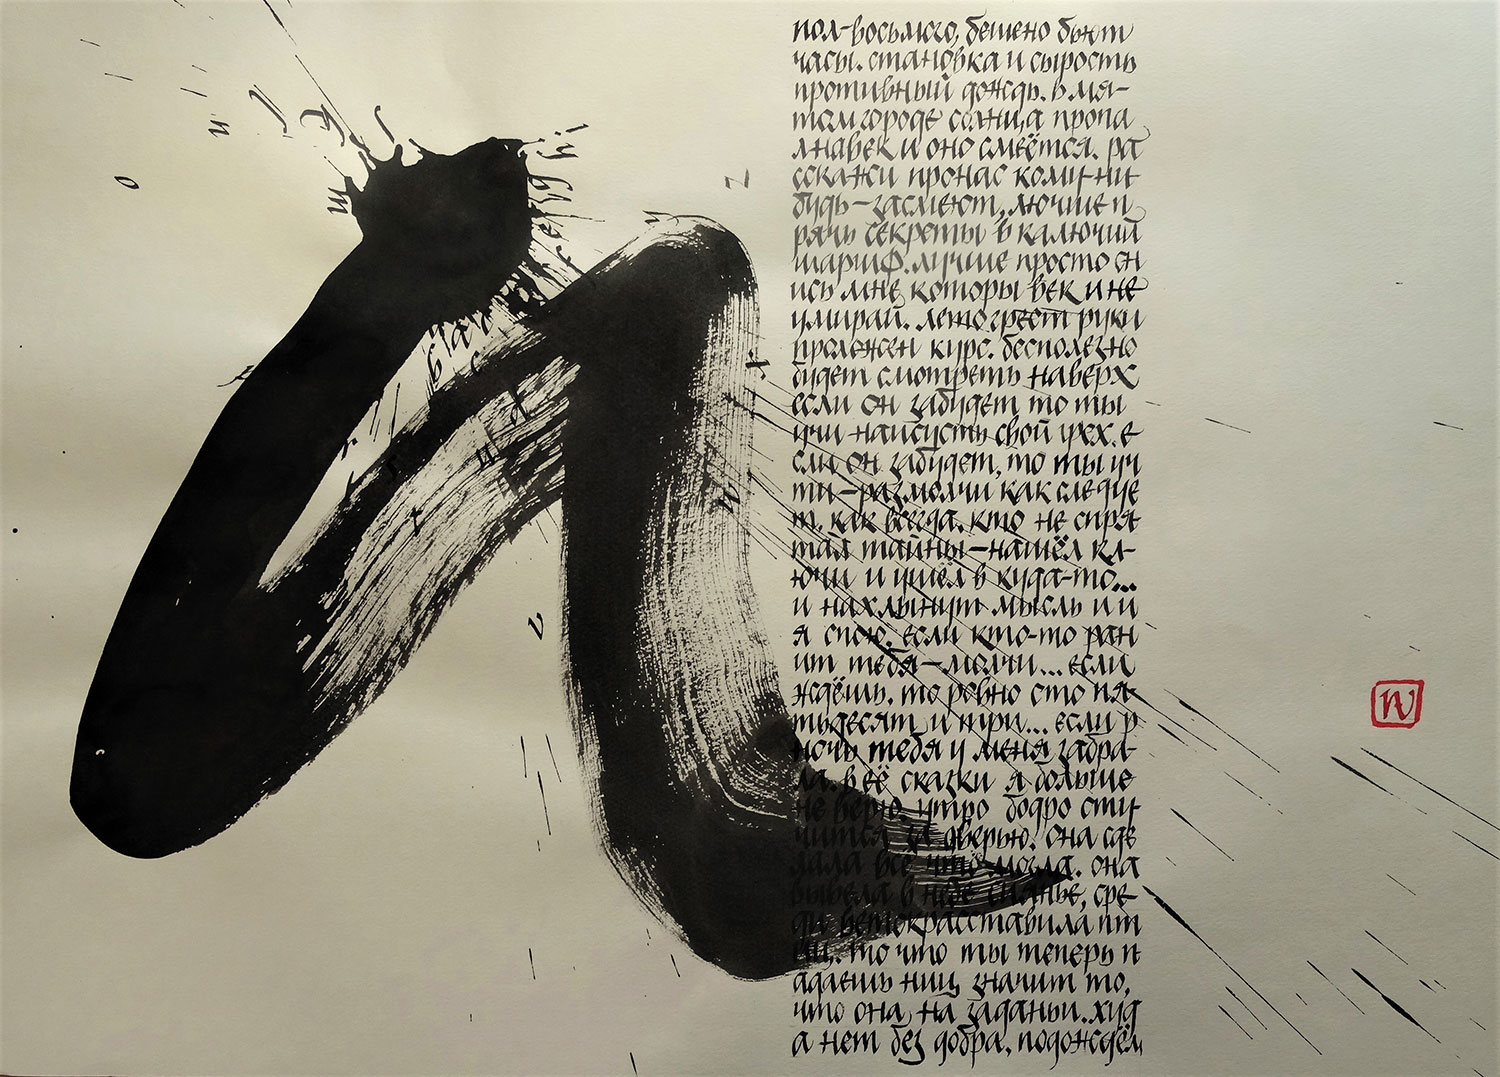 пол-восьмого, бешено бьют
часы. становка и сырость
противный дождь. в мя-
том городе солнца пропа
л навек и оно смеётся. ра
сскажи про нас кому-ни
будь — засмеют, лючше п
рячь секреты в калючий
шарф. лучше просто сн
ись мне которы век и не
умирай. лето греет руки
проложен курс. бесполезно
будет смотреть наверх
если он забудет то ты
учи наизусть свой грех. е
сли он забудет, то ты уч
ти — размолчи как следуе
т. как всегда. кто не спря
тал тайны — нашёл кл-
ючи и ушёл в куда-то...
и нахлынут мысль и и
я спою. если кто-то ран
ит тебя — молчи... если
ждёшь. то ровно сто пя-
тьдесят и три... если
ночь тебя у меня забра-
ла. в её сказки я больше
не верю. утро бодро сту
чится за дверью. она сде
лала всё что могла. она
вывела в небе сиянье, сре-
ди веток расставила пт
иц. то что ты теперь п
адаешь ниц, значит то,
что она на заданьи. худ
а нет без добра, подождём